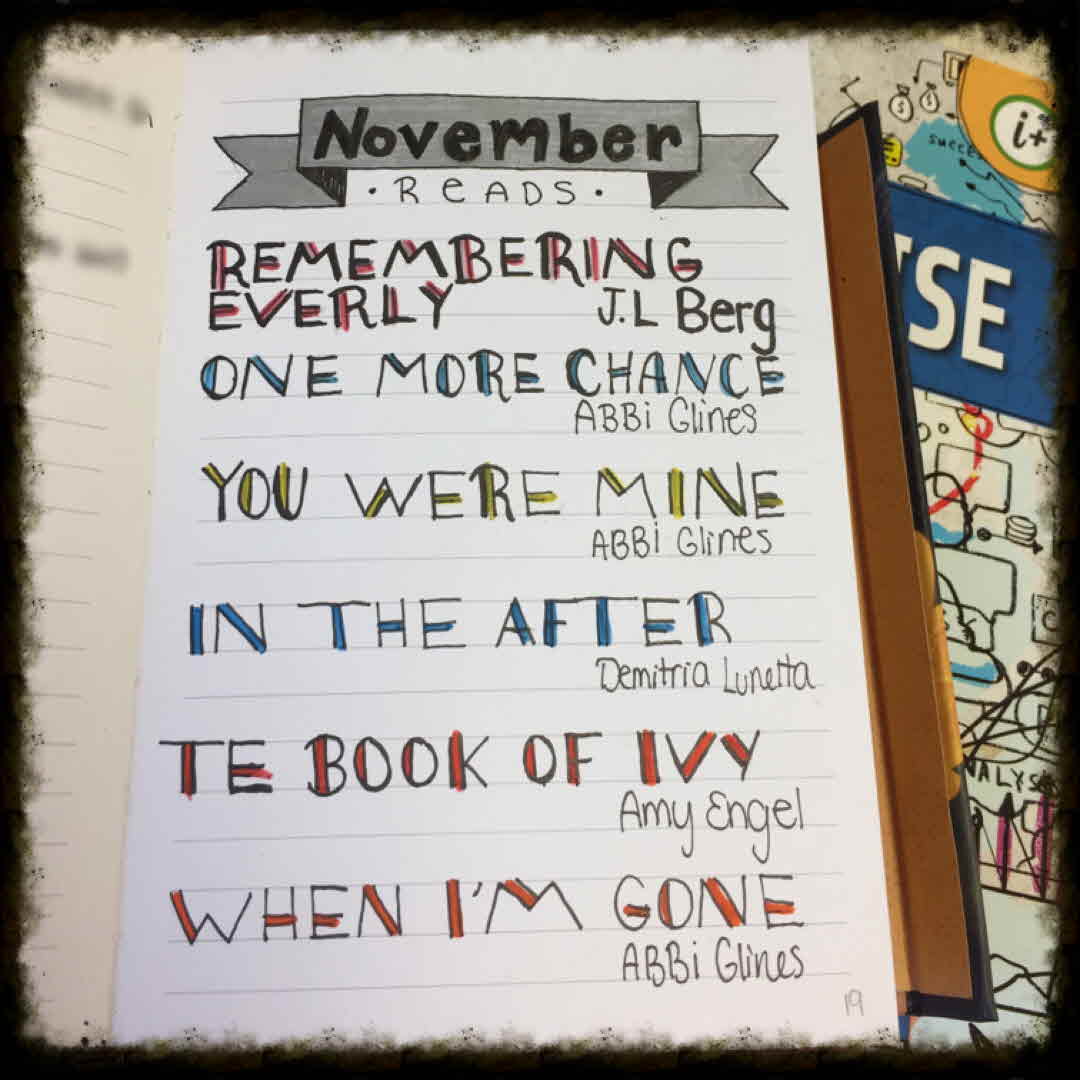 November
· READS ·
REMEMBERING
EVERLY J.L Berg
ONE MORE CHANCE
ABBi Glines
YOU WERE MINE
ABBi Glines
IN THE AFTER
Demitria Lunetta
TE BOOK OF IVY
Amy Engel
WHEN I'M GONE
ABBi Glines
19
i+
SUCCE
SE
NALYS